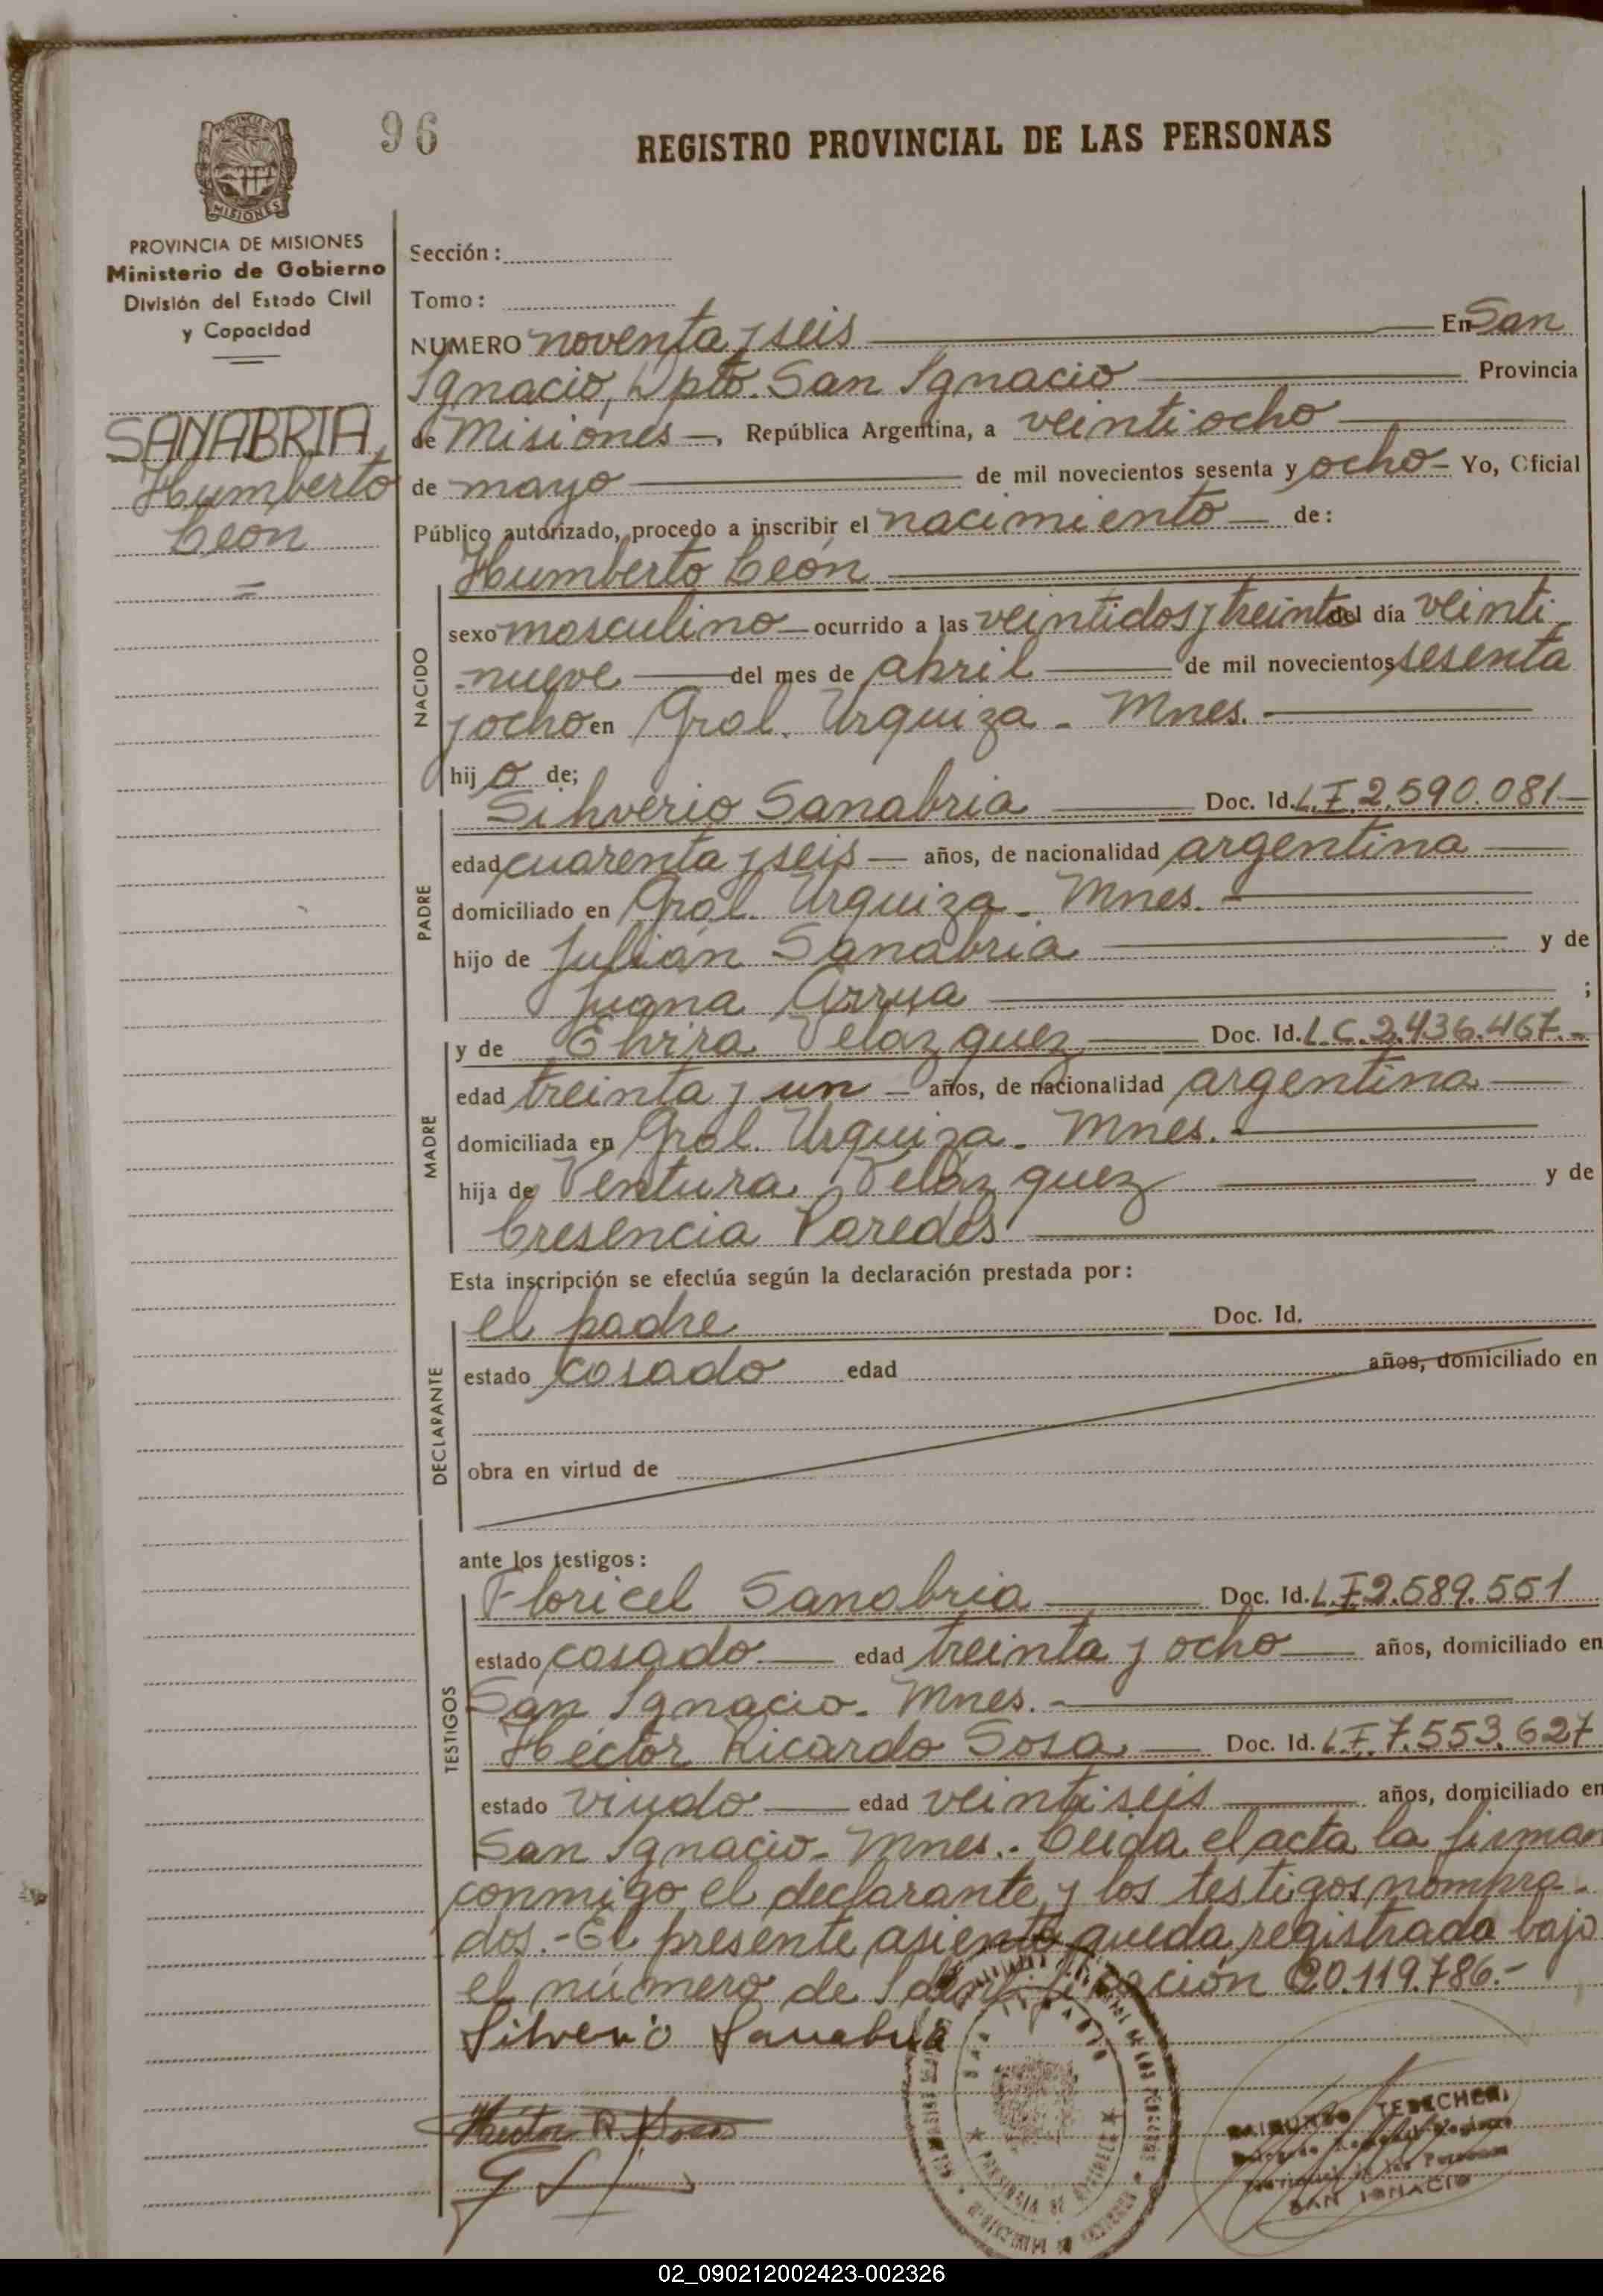 96
REGISTRO PROVINCIAL DE LAS PERSONAS
PROVINCIA DE MISIONES
Ministerio de Gobierno
División del Estado Civil
y Capacidad
MISIONES
SANABRIA,
Humberto
León
=
Sección:
Tomo:
NUMERO noventa y seis En San
Ignacio, Dpto. San Ignacio Provincia
de Misiones, República Argentina, a veintiocho
de mayo de mil novecientos sesenta y ocho Yo, Oficial
Público autorizado, procedo a inscribir el nacimiento de:
NACIDO
Humberto León
sexo masculino ocurrido a las veintidos y treinta del día veinti
nueve del mes de abril de mil novecientos sesenta
y ocho en Gral. Urquiza - Mnes.
hijo de;
PADRE
Silverio Sanabria Doc. Id. L.E. 2.590.081
edad cuarenta y seis años, de nacionalidad argentina
domiciliado en Gral. Urquiza - Mnes.
hijo de Julián Sanabria y de
Juana Arrua ;
MADRE
y de Elvira Velazquez Doc. Id. L.C. 2.436.467.-
edad treinta y un años, de nacionalidad argentina
domiciliada en Gral. Urquiza - Mnes.
hija de Ventura Velázquez y de
Cresencia Paredes
Esta inscripción se efectúa según la declaración prestada por:
DECLARANTE
el padre Doc. Id.
estado casado edad años, domiciliado en
obra en virtud de
ante los testigos:
TESTIGOS
Floricel Sanabria Doc. Id. L.E. 2.589.551
estado casado edad treinta y ocho años, domiciliado en
San Ignacio - Mnes.
Héctor Ricardo Sosa Doc. Id. L.E. 7.553.627
estado viudo edad veintiseis años, domiciliado en
San Ignacio - Mnes.- Leida el acta la firman
conmigo el declarante y los testigos nombra-
dos.- El presente asiento queda registrado bajo
el número de Identificación 20.119.786.-
Silverio Sanabria
Héctor R. Sosa
SAN IGNACIO
02_090212002423-002326